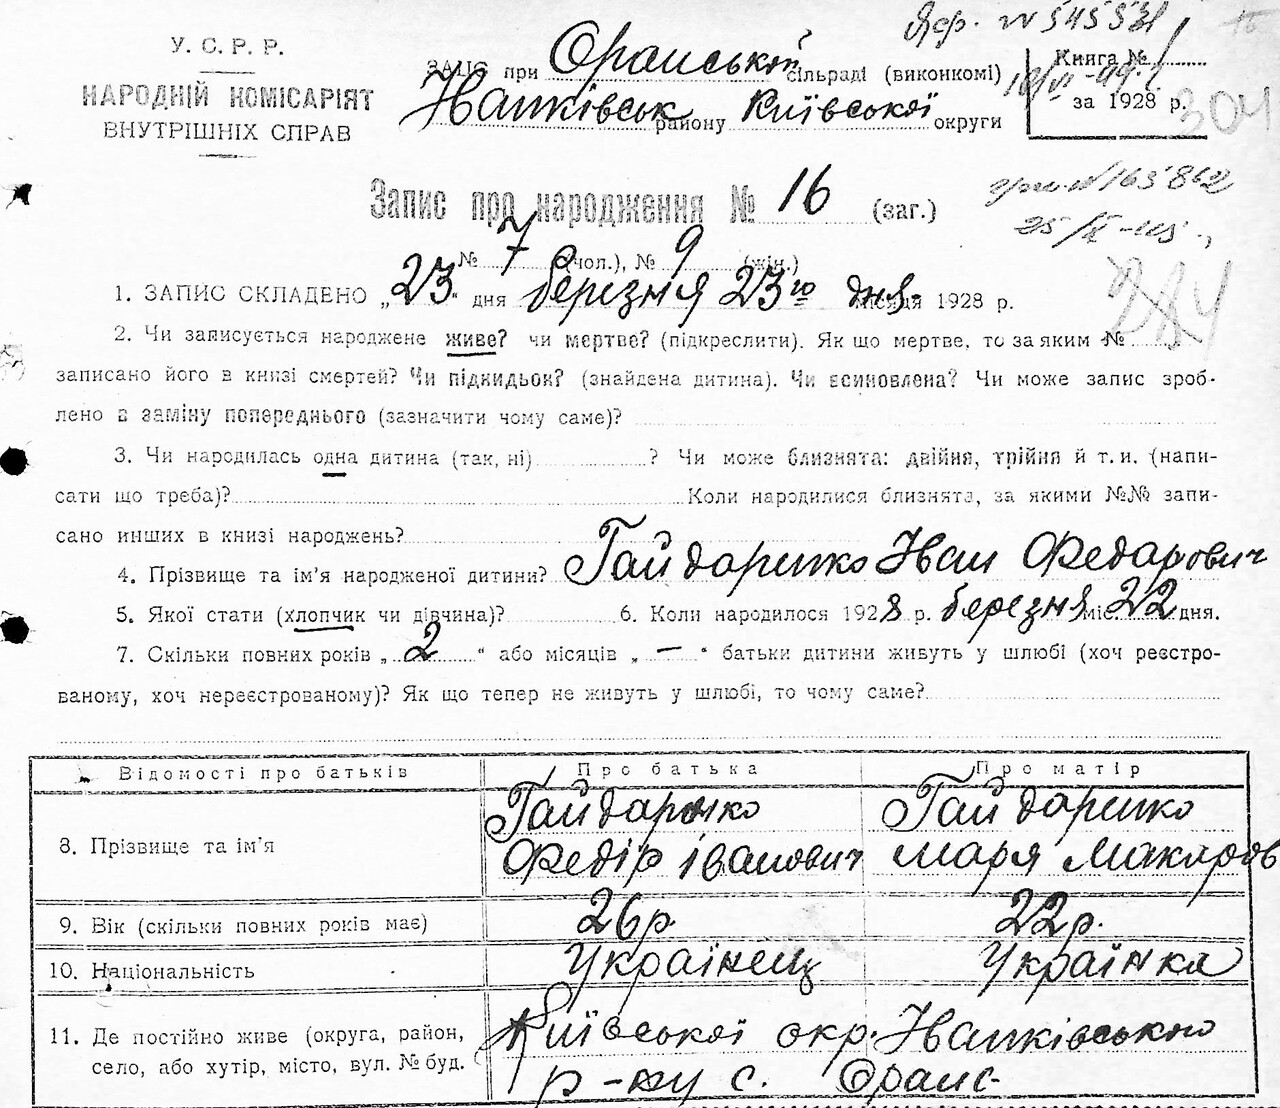 У. С. Р. Р.
НАРОДНІЙ КОМІСАРІЯТ
ВНУТРІШНІХ СПРАВ
ЗАЦС при Оранській сільраді (виконкомі)
району Київської округи
№ 545531
Книга №
за 1928 р.
304
Запис про народження № 16 (заг.)
№ 165862
№ 7 (чол.), № 9 (жін.)
1. ЗАПИС СКЛАДЕНО „23" дня березня 23го дня місяця 1928 р.
2. Чи записується народжене живе? чи мертве? (підкреслити). Як що мертве, то за яким №
записано його в книзі смертей? Чи підкидьок? (знайдена дитина). Чи всиновлена? Чи може запис зроб-
лено в заміну попереднього (зазначити чому саме)?
3. Чи народилась одна дитина (так, ні) ? Чи може близнята: двійня, трійня й т. и. (напи-
сати що треба)? Коли народилися близнята, за якими №№ запи-
сано инших в книзі народжень?
4. Прізвище та ім'я народженої дитини? Гайдаренко Іван Федарович
5. Якої стати (хлопчик чи дівчина)? 6. Коли народилося 1928 р. березня міс. 22 дня.
7. Скільки повних років „ 2 " або місяців „ — " батьки дитини живуть у шлюбі (хоч реєстро-
ваному, хоч нереєстрованому)? Як що тепер не живуть у шлюбі, то чому саме?
Відомості про батьків Про батька Про матір
8. Прізвище та ім'я Гайдаренко Федір Іванович Гайдаренко Маря Макаров
9. Вік (скільки повних років має) 26р 22р.
10. Національність Українец Українка
11. Де постійно живе (округа, район, Київської окр. Іванківського
село, або хутір, місто, вул. № буд. р-ну с. Оране-